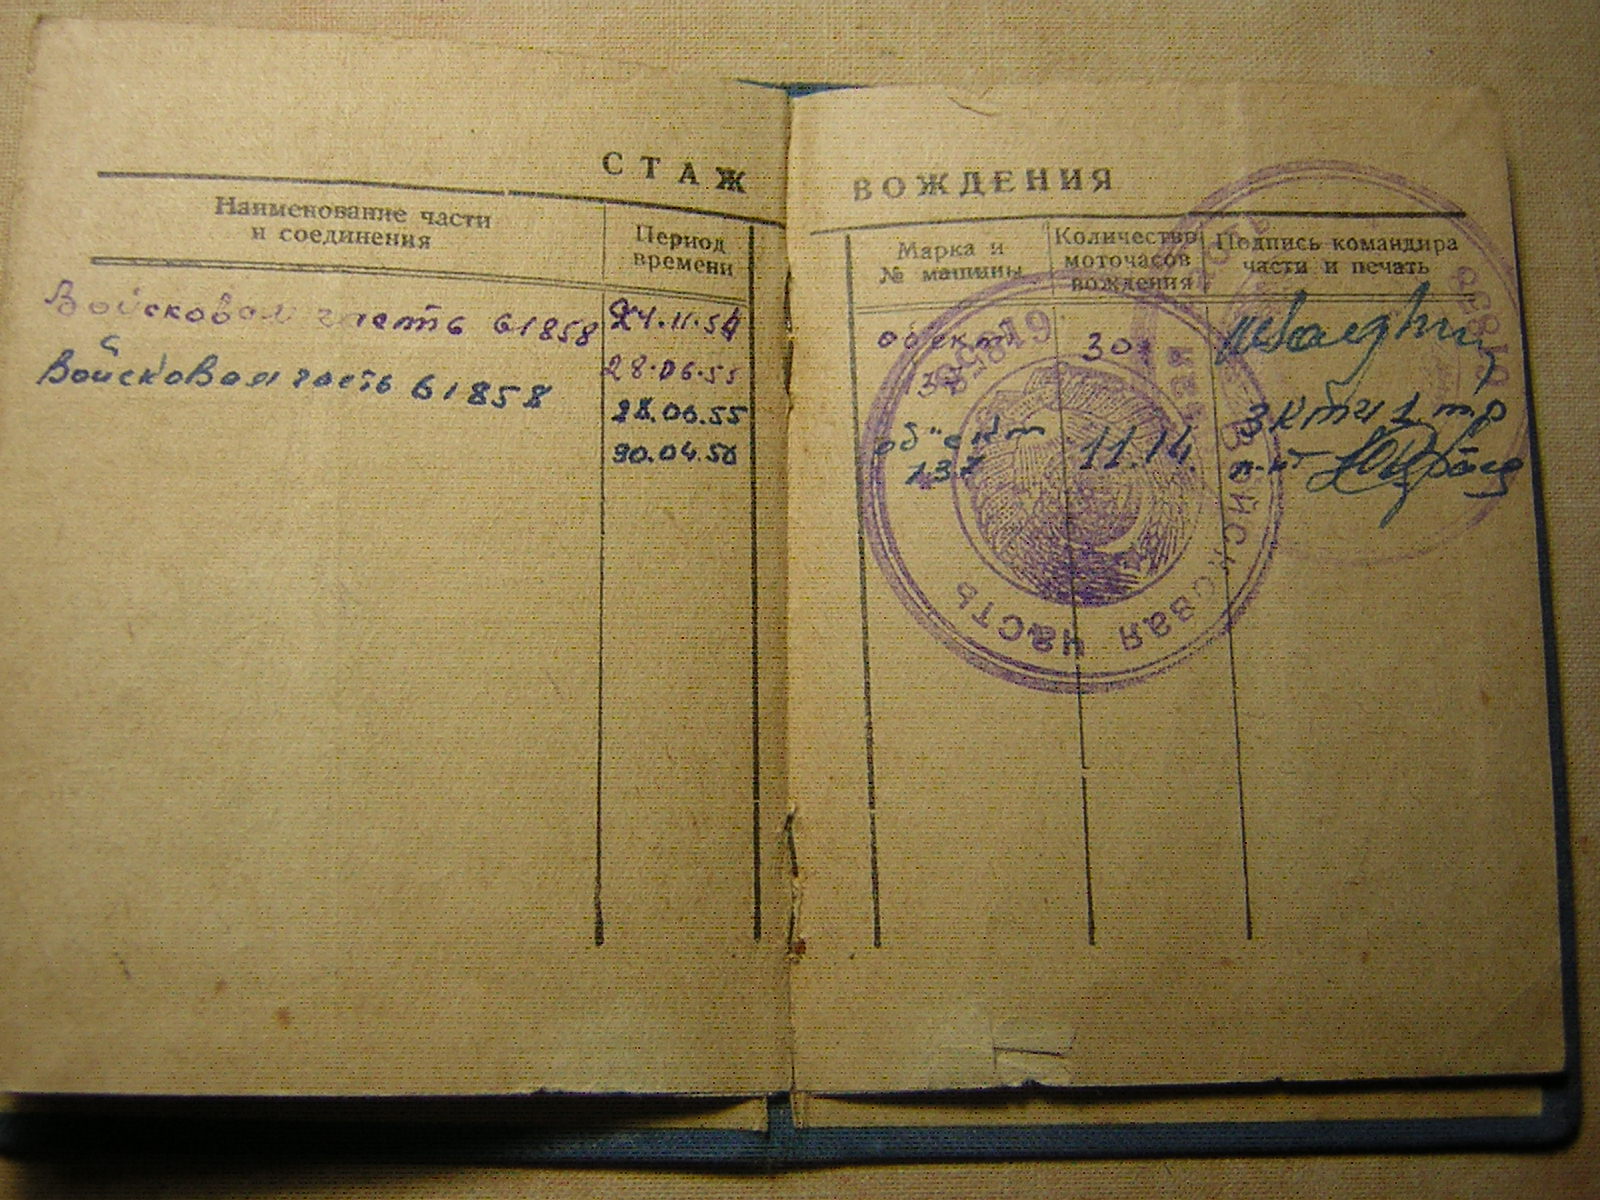 СТАЖ ВОЖДЕНИЯ
Наименование части
и соединения
Период
времени
Марка и
№ машины
Количество
моточасов
вождения
Подпись командира
части и печать
Войсковая часть 61858
24.11.54
28.06.55
обект
137
30
Войсковая часть 61858
28.06.55
30.04.56
об"ект
137
11.14.
ВОЙСКОВАЯ ЧАСТЬ
61858
ЧАСТЬ
61858